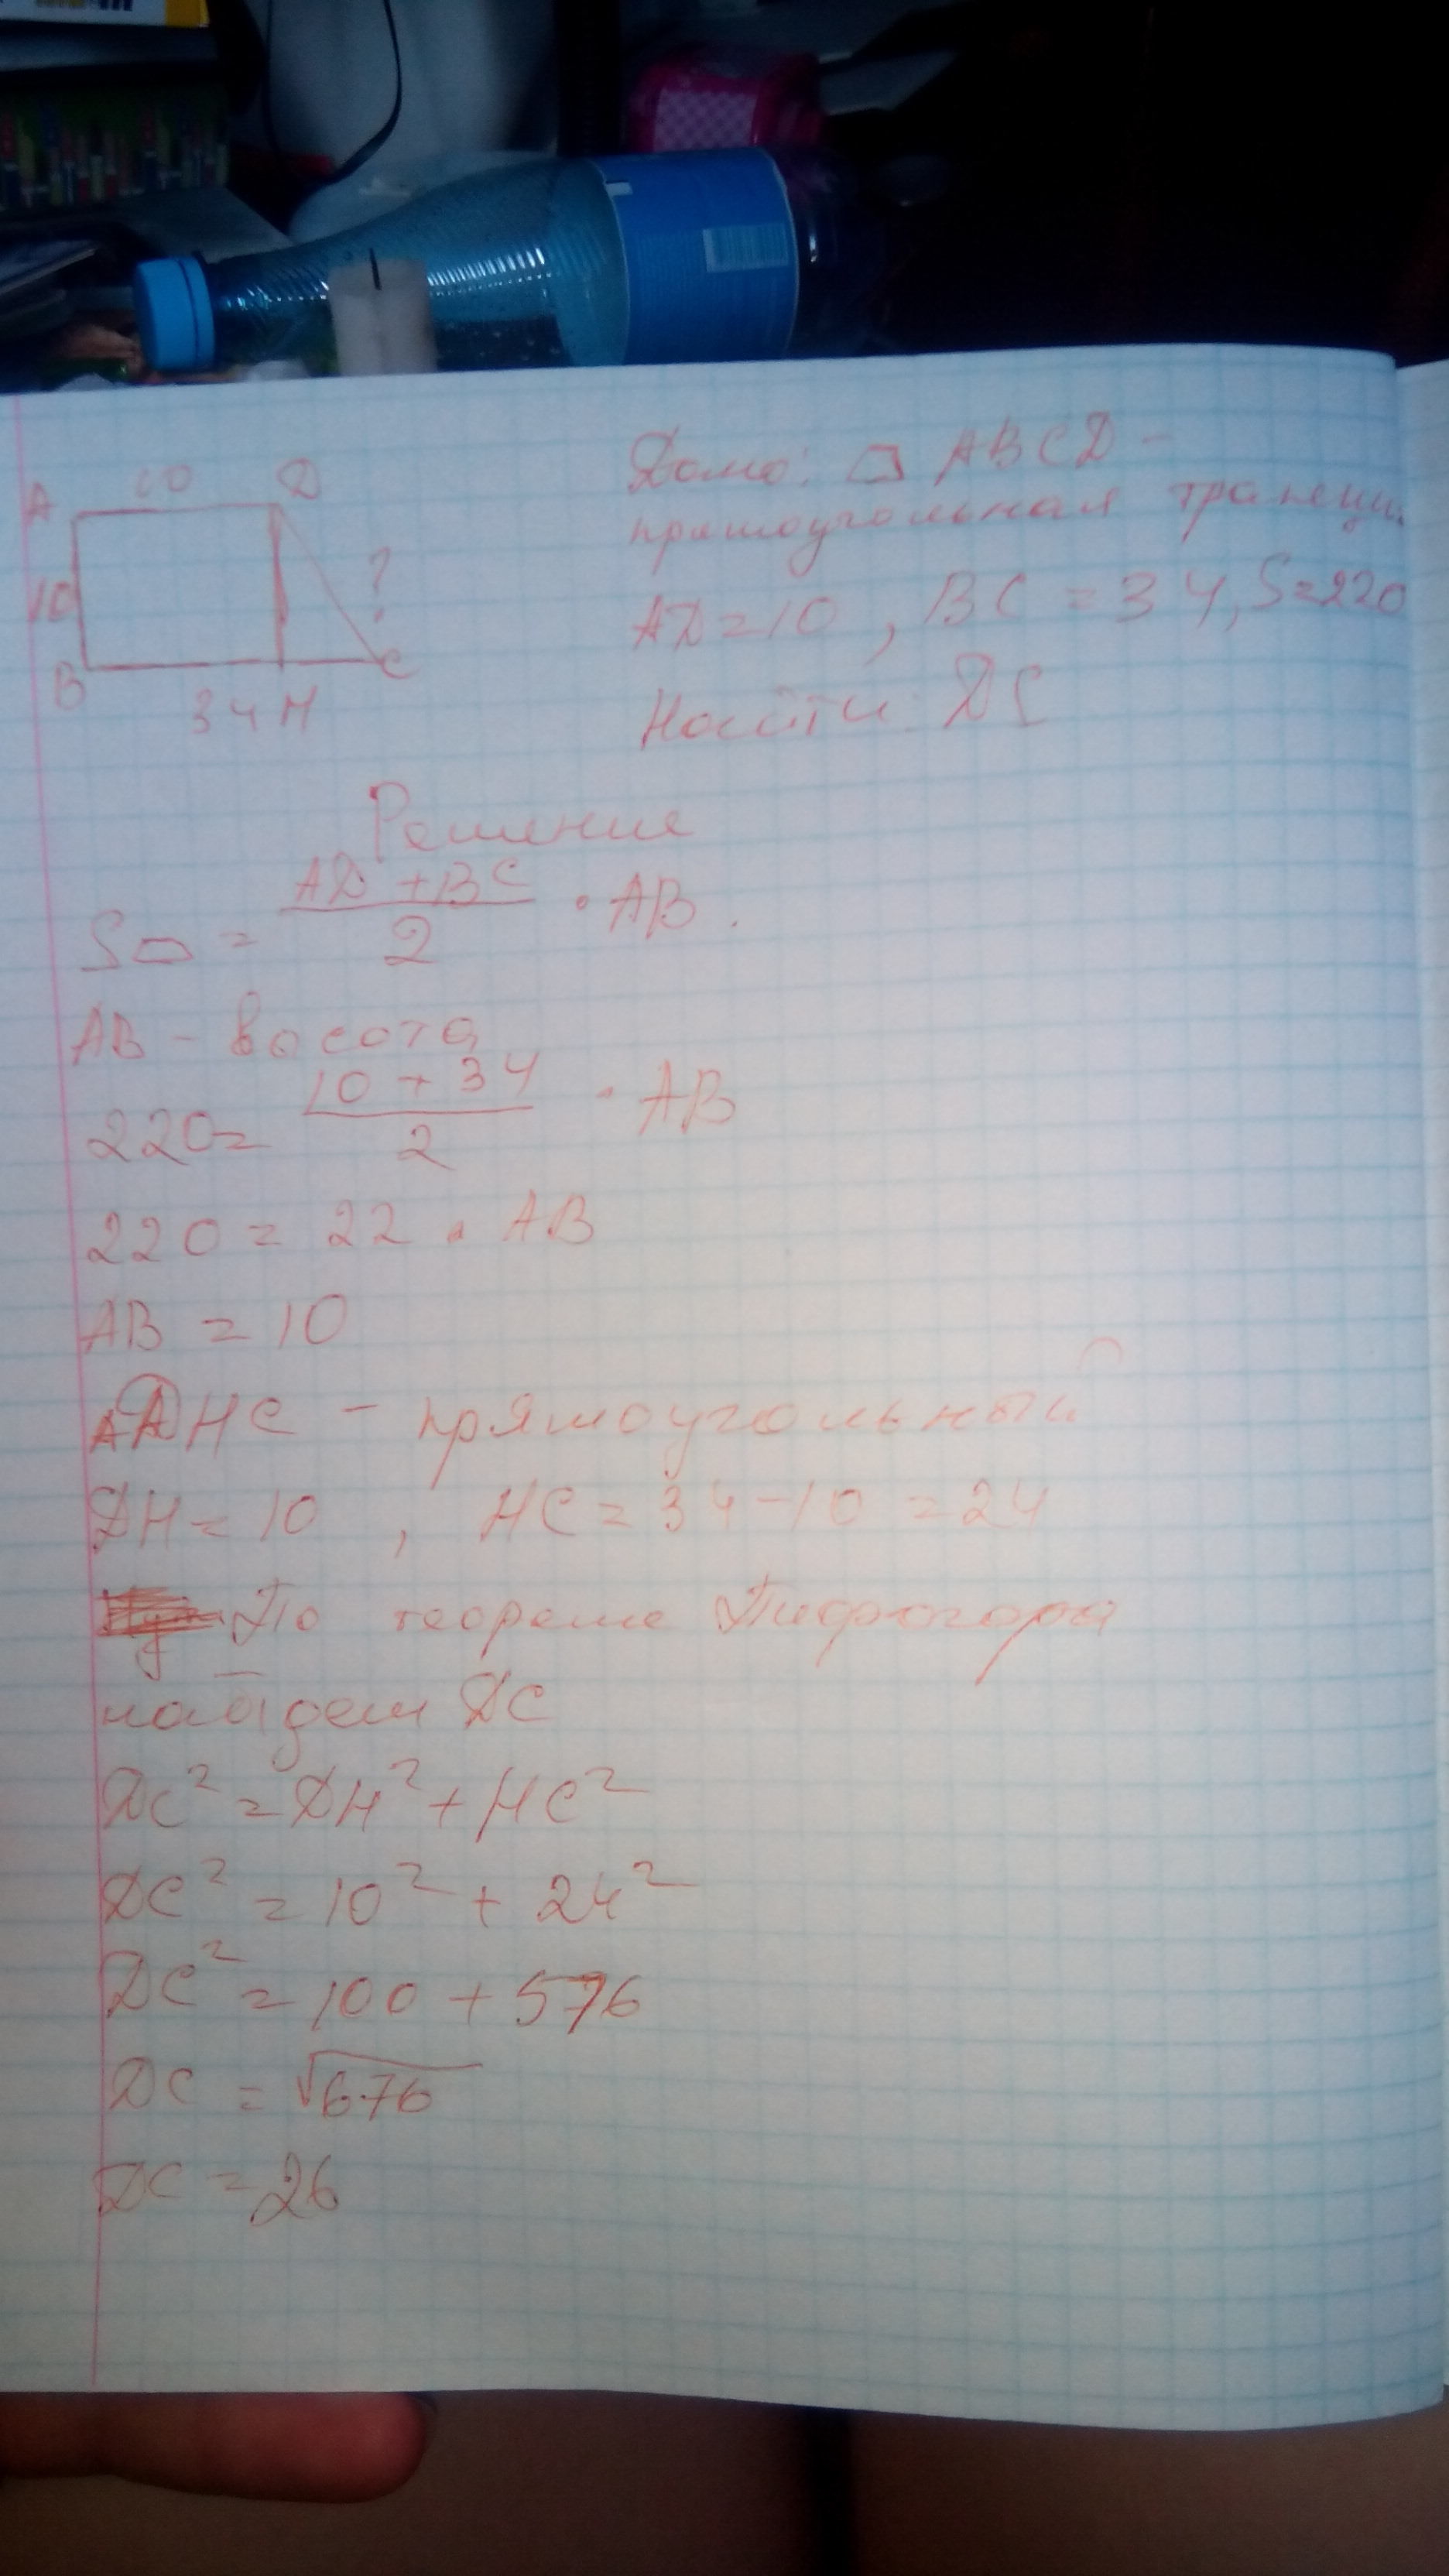 A 10 D
10 ?
B C
34 H
Дано: ▱ ABCD -
прямоугольная трапеци
AD=10, BC = 34, S=220
Найти: DC
Решение
S▱ = (AD + BC)/2 · AB.
AB - высота
220= (10 + 34)/2 · AB
220 = 22 · AB
AB = 10
DHC - прямоугольный
DH = 10 , HC = 34 - 10 = 24
По теореме Пифагора
найдем DC
DC² = DH² + HC²
DC² = 10² + 24²
DC² = 100 + 576
DC = √676
DC = 26